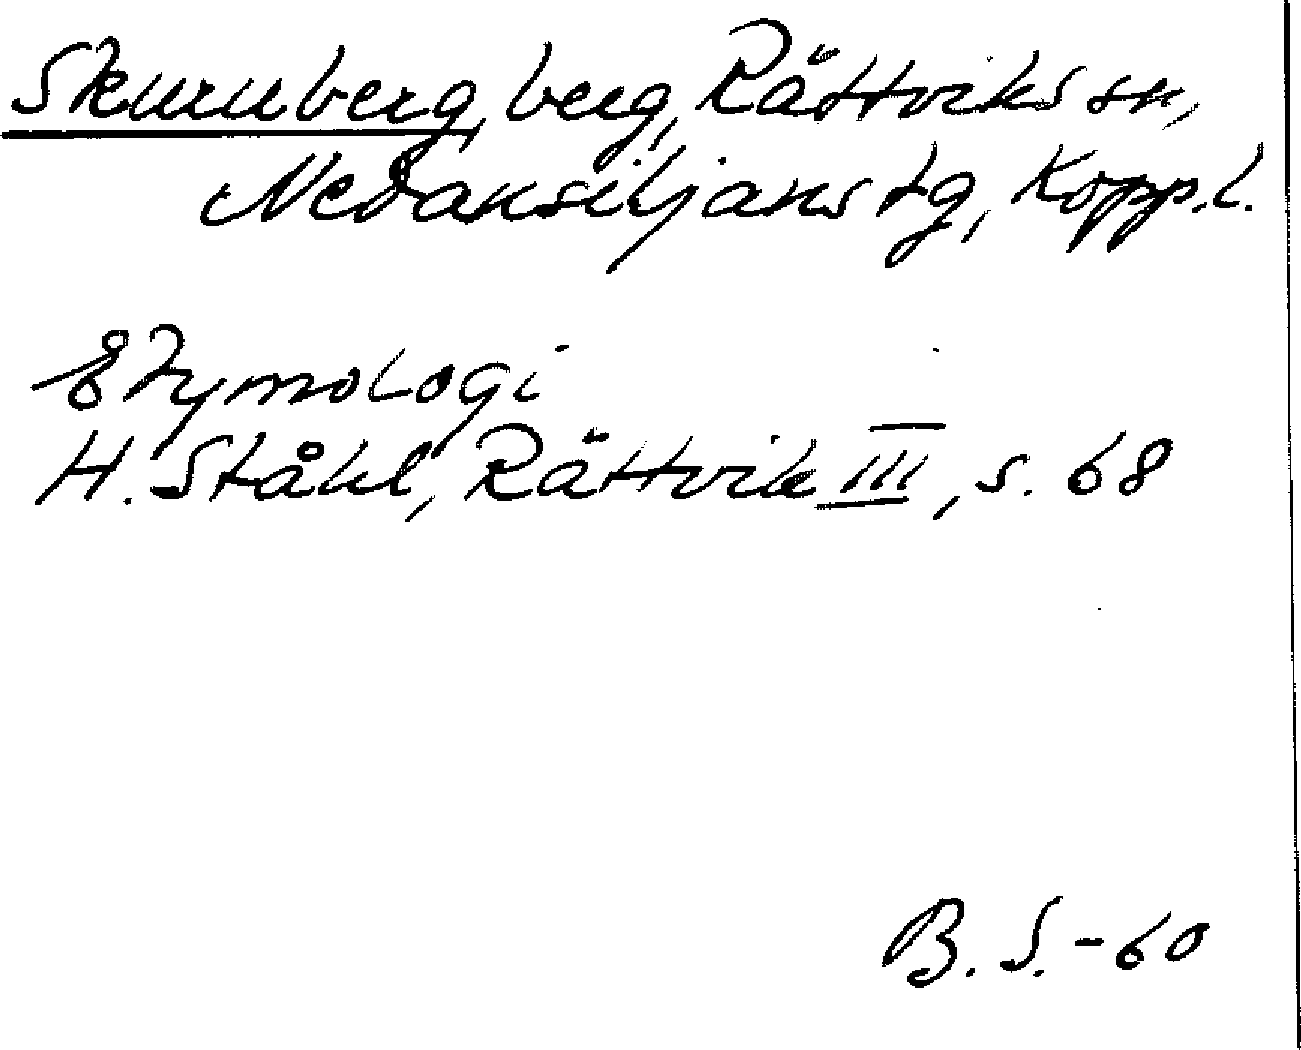 Skuruberg, berg, Rättviks sn,
Nedansiljans tg, Kopp.l.
Etymologi
H. Ståhl, Rättvik III, s. 68
B. S. -60